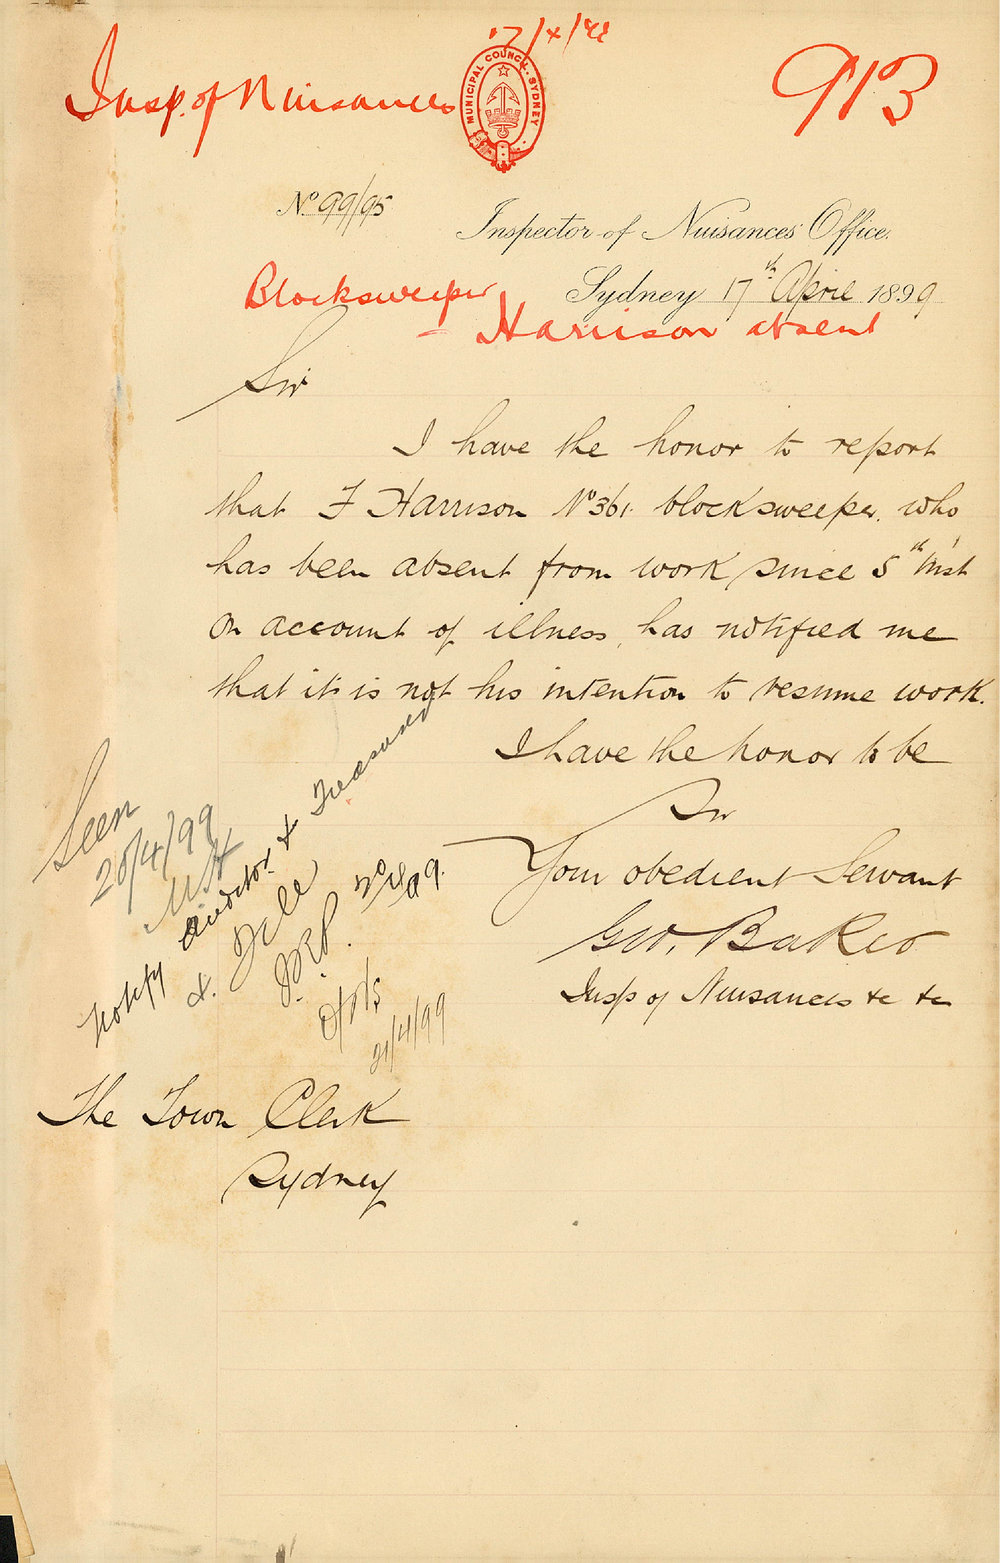 17/4/99
Insp. of Nuisances
MUNICIPAL COUNCIL. SYDNEY
913
No 99/95
Inspector of Nuisances Office.
Sydney 17th April 1899
Blocksweeper
- Harrison absent
Sir
I have the honor to report
that F Harrison No 361. blocksweeper, who
has been absent from work since 5th inst
on account of illness, has notified me
that it is not his intention to resume work.
I have the honor to be
Sir
Your obedient Servant
Geo. Baker
Insp of Nuisances &c &c
Seen
20/4/99
Notify Auditor & Treasurer
&. File
21/4/99
The Town Clerk
Sydney